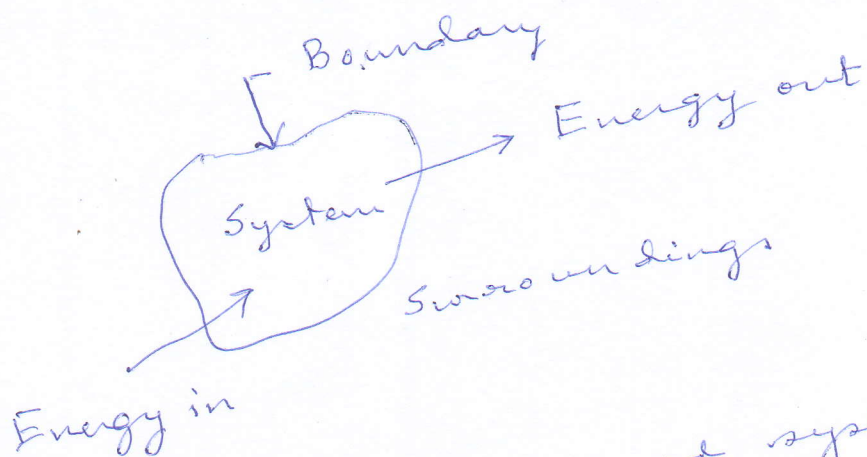 Boundary
Energy out
System
Surroundings
Energy in